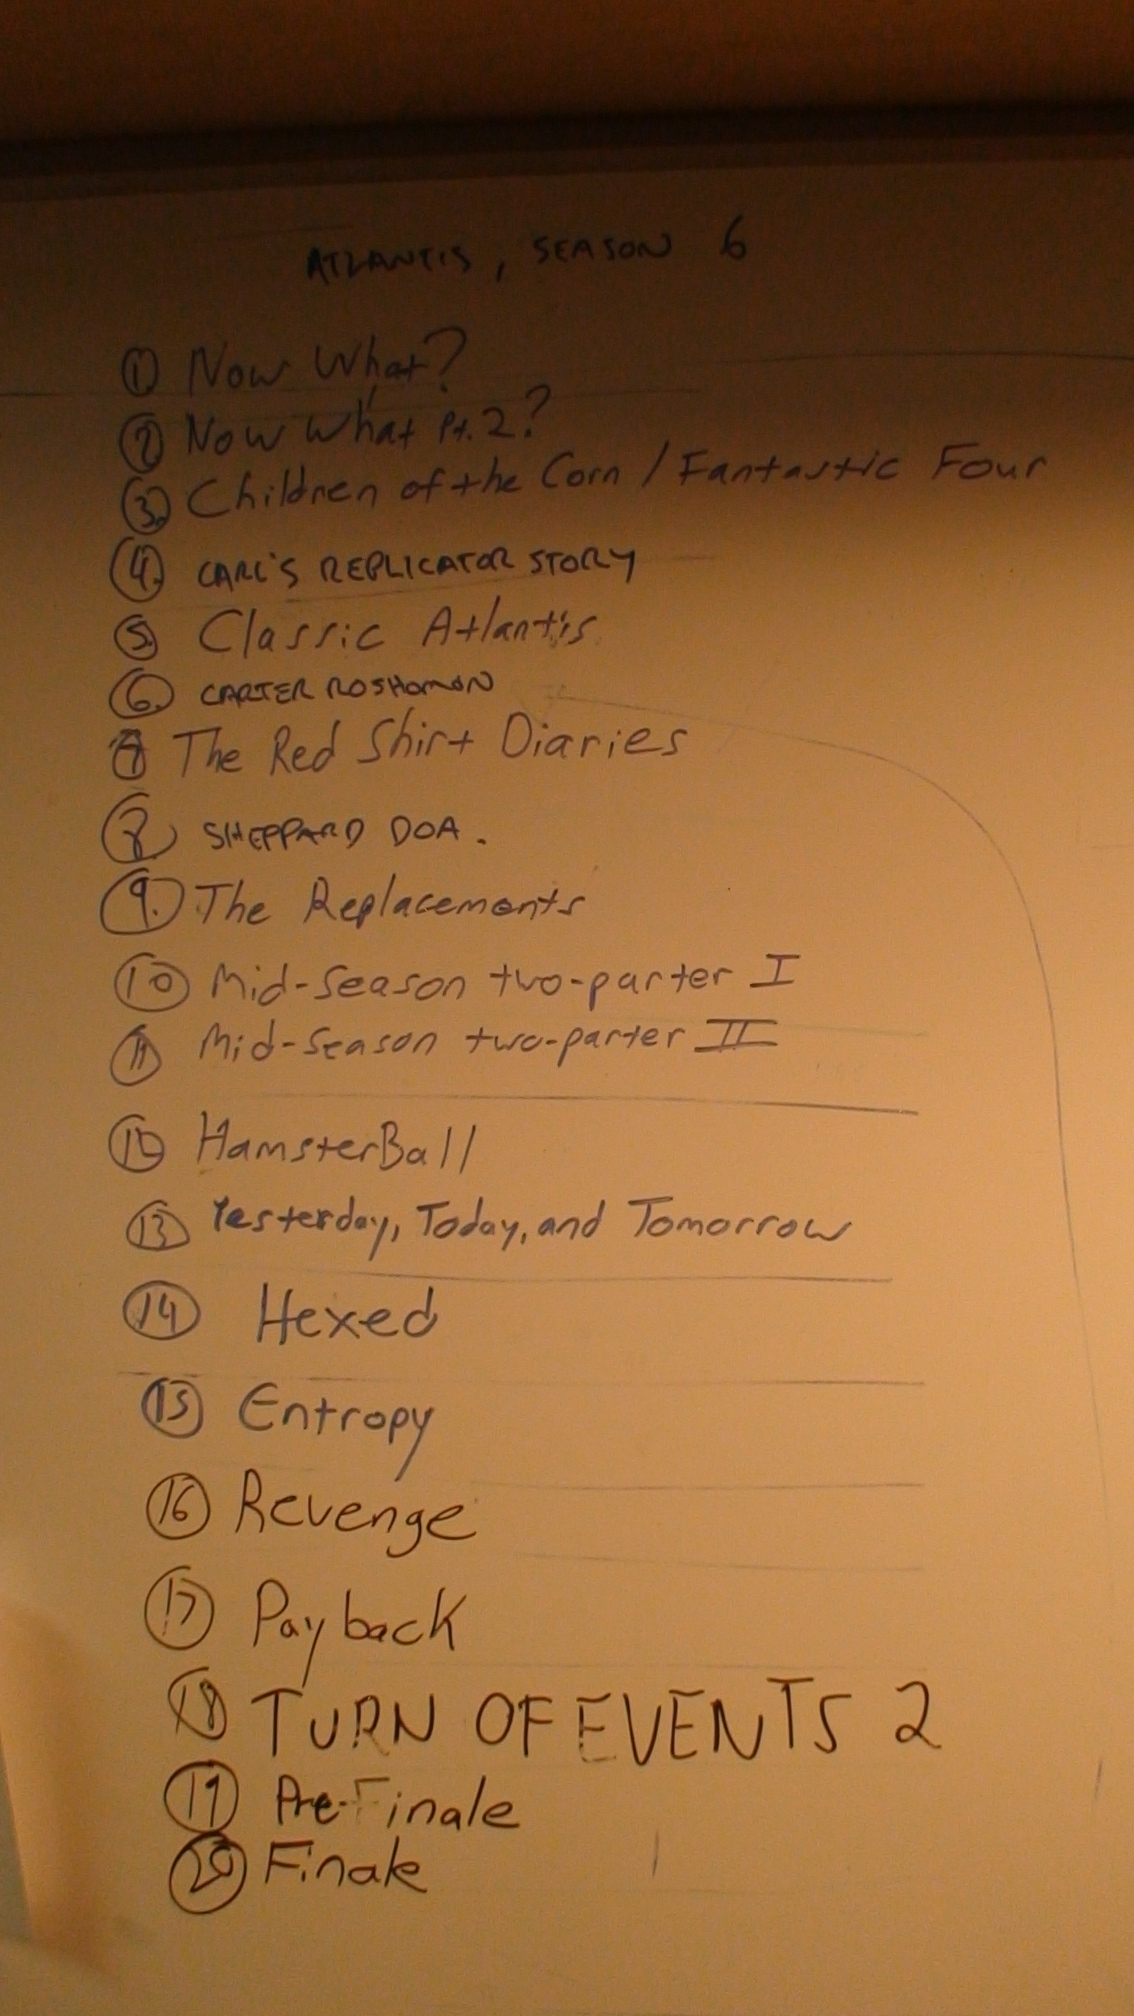 ATLANTIS, SEASON 6
① Now What?
② Now What Pt. 2?
③ Children of the Corn / Fantastic Four
④ CARL'S REPLICATOR STORY
⑤ Classic Atlantis
⑥ CARTER ROSHOMON
⑦ The Red Shirt Diaries
⑧ SHEPPARD DOA.
⑨ The Replacements
⑩ Mid-Season two-parter I
⑪ Mid-Season two-parter II
⑫ HamsterBall
⑬ Yesterday, Today, and Tomorrow
⑭ Hexed
⑮ Entropy
⑯ Revenge
⑰ Payback
⑱ TURN OF EVENTS 2
⑲ Pre-Finale
⑳ Finale